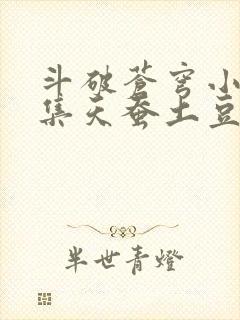 斗破苍穹小
集天蚕土豆
半世青燈